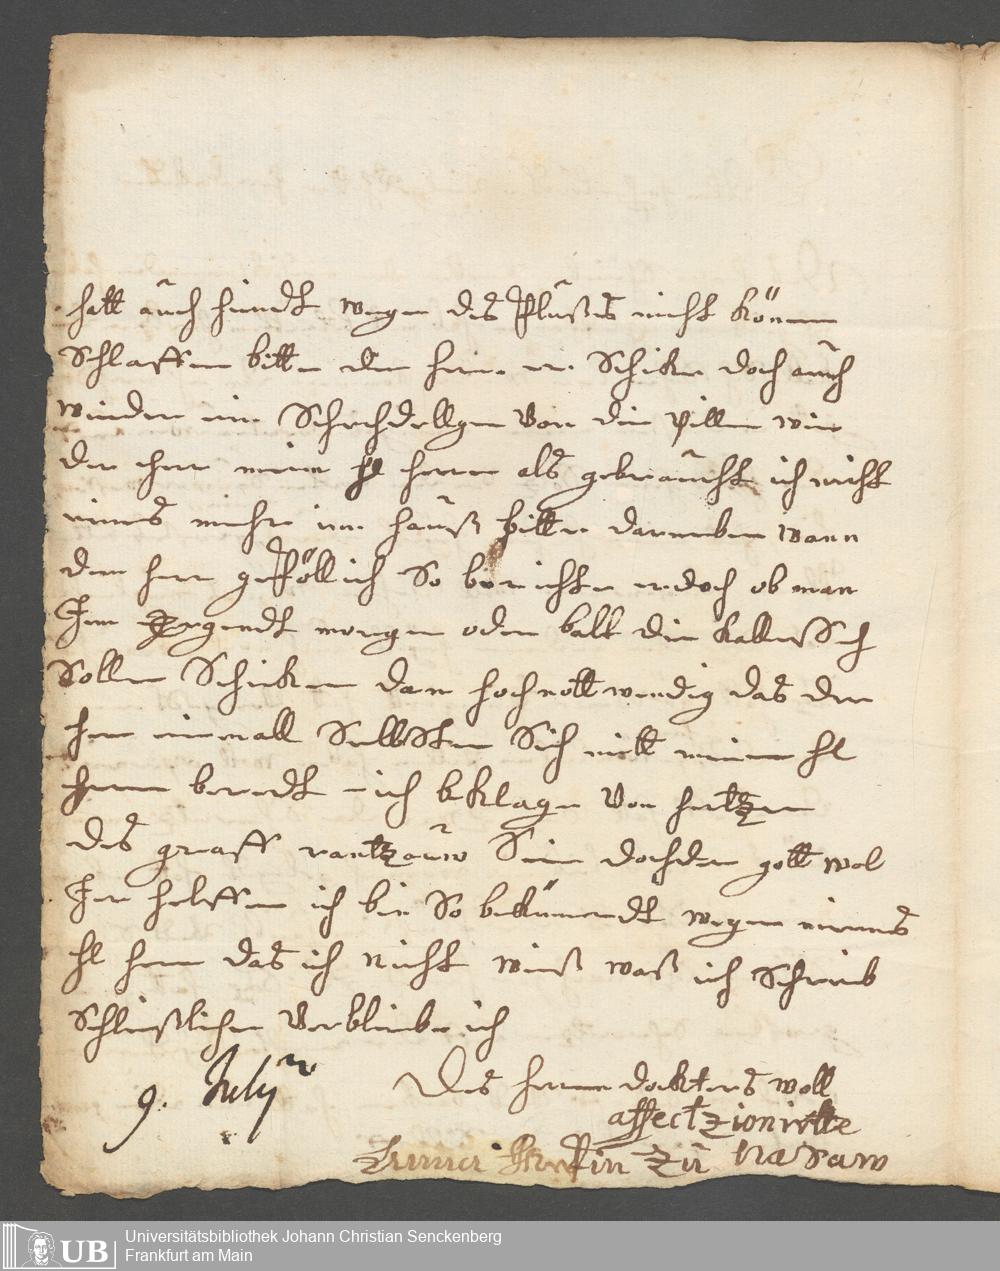 hatt auch hindt wegen des Flußes nicht können
Schlaffen bitte der herr er Schicke doch auch
wieder ein Schechdellgen Von den pillen wie
der herr mein hl herrn als gebraucht ich nicht
eines mehr im hauß bitte darneben wann
dem herr gefällich So berichte er doch ob man
Im morgen oder balt die
Sollen Schicken dan hochnottwendig das der
herr einmall Selbsten Sich mitt meinem hl
herrn beredt ich beklage Von hertzen
des graff rantzauw Sein dochder gott wol
Ihr helffen ich bin So bekümerdt wegen meines
hl herrn das ich nicht weiß waß ich Schreib
Schließlichen Verbleibe ich
9. July
Des herrn docktors woll
affecktzionirtte
zu naSaw
UB Universitätsbibliothek Johann Christian Senckenberg
Frankfurt am Main